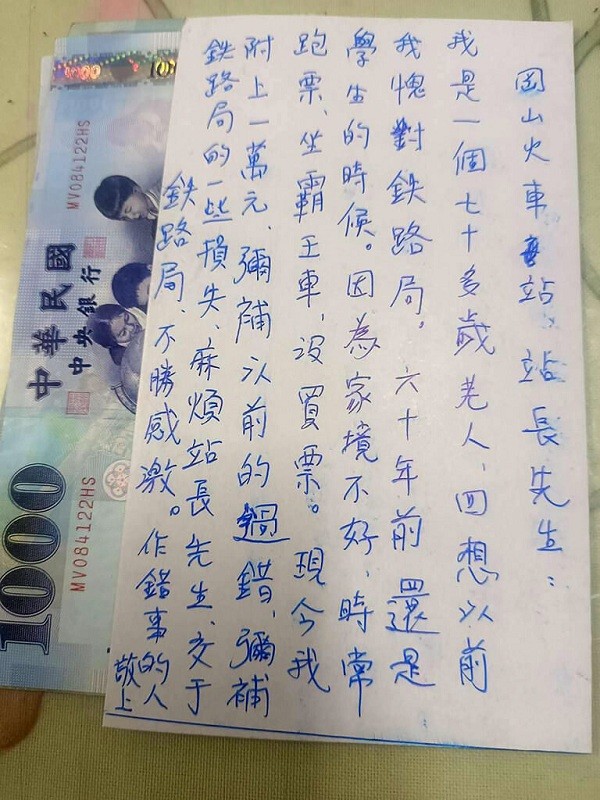 岡山火車站、站長先生：
我是一個七十多歲老人、回想以前
我愧對鉄路局。六十年前還是
學生的時候。因為家境不好,時常
跑票、坐霸王車,沒買票。現今我
附上一萬元、彌補以前的過錯,彌補
鉄路局的一些損失、麻煩站長先生、交于
鉄路局、不勝感激。作錯事的人
敬上
MV084122HS
中華民國
中央銀行
1000
MV084122HS